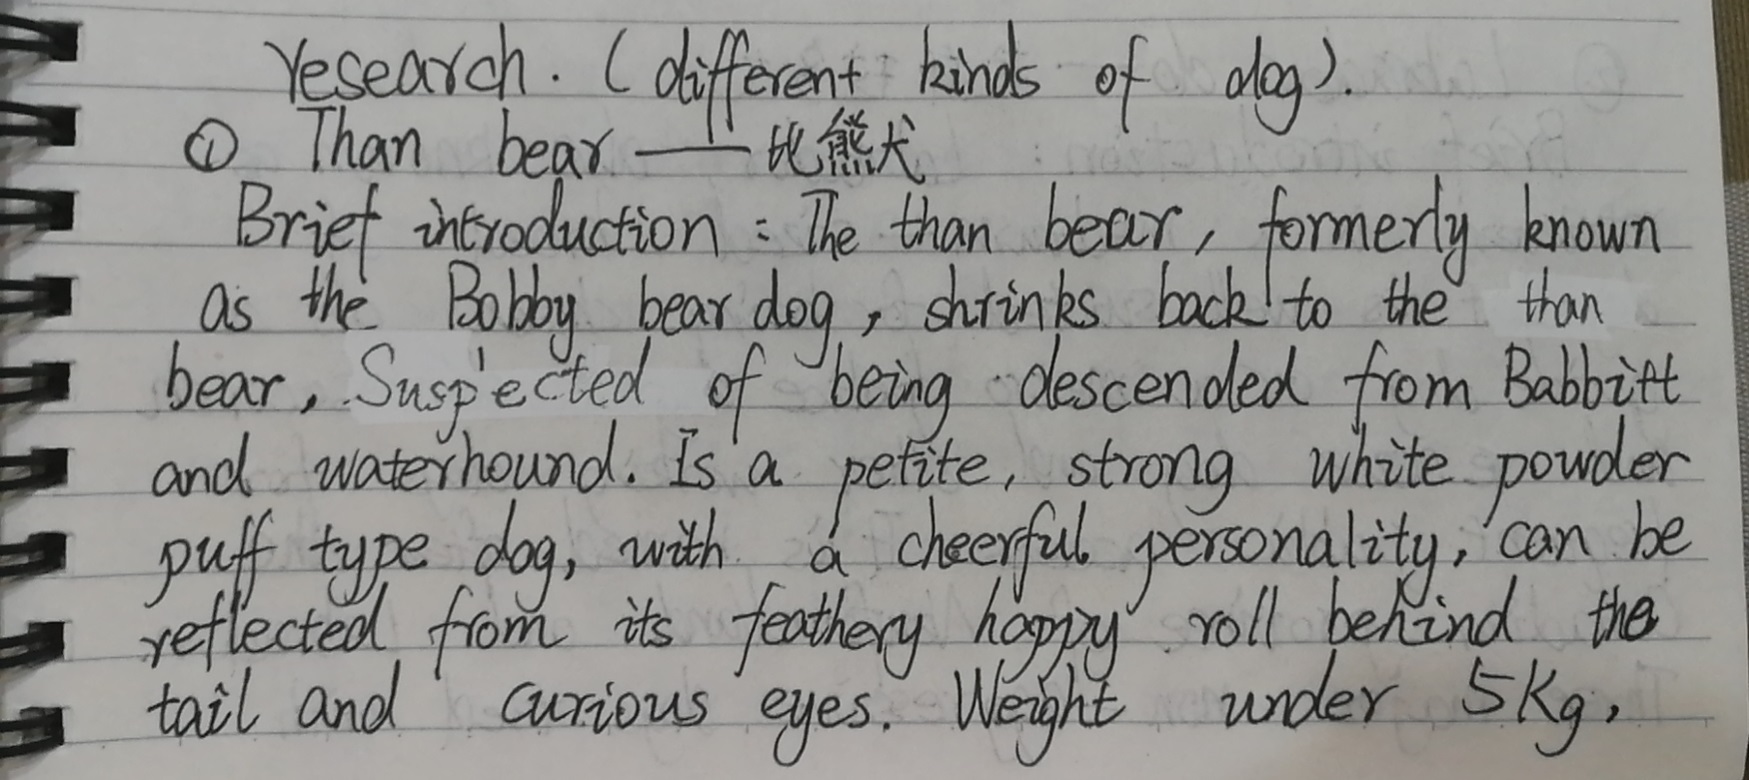 research. (different kinds of dog).
① Than bear——比熊犬
Brief introduction: The than bear, formerly known
as the Bobby bear dog, shrinks back to the than
bear, Suspected of being descended from Babbitt
and waterhound. Is a petite, strong white powder
puff type dog, with a cheerful personality, can be
reflected from its feathery happy roll behind the
tail and curious eyes. Weight under 5Kg,